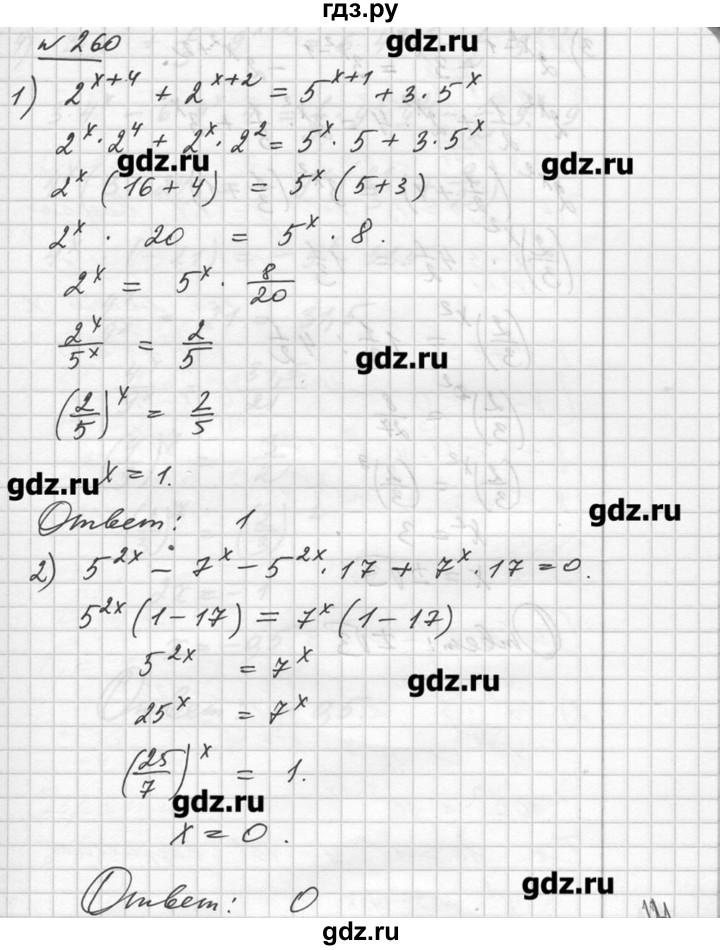 гдз.ру
№ 260
gdz.ru
1) 2^{x+4} + 2^{x+2} = 5^{x+1} + 3·5^x
2^x·2^4 + 2^x·2^2 = 5^x·5 + 3·5^x
gdz.ru gdz.ru
2^x (16+4) = 5^x (5+3)
2^x · 20 = 5^x · 8.
2^x = 5^x · 8/20
2^x/5^x = 2/5
gdz.ru
(2/5)^x = 2/5
x = 1.
gdz.ru
gdz.ru
Ответ: 1
2) 5^{2x} - 7^x - 5^{2x}·17 + 7^x·17 = 0.
5^{2x} (1-17) = 7^x (1-17)
5^{2x} = 7^x
gdz.ru
25^x = 7^x
(25/7)^x = 1.
gdz.ru
x = 0.
gdz.ru
Ответ: 0
gdz.ru